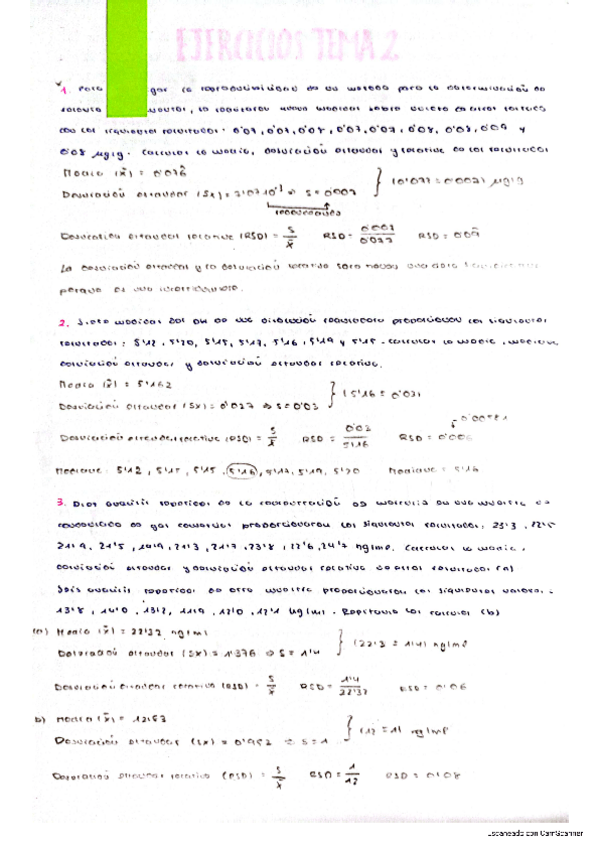 EJERCICIOS TEMA 2
1. Para gar la reproducibilidad de un método para la determinación de
selenio, se realizaron nueve medidas sobre
con los siguientes resultados: 0'07, 0'07, 0'08, 0'07, 0'07, 0'08, 0'08, 0'09 y
0'08 µg/g. Calcular la media, desviación estandar y relativa de los resultados
Media (x̄) = 0'076̂
Desviación estandar (Sx) = 7'07·10⁻³ ⇒ S = 0'007 } (0'077 ± 0'007) µg/g
redondeando
Desviación estandar relativa (RSD) = S/x̄ RSD = 0'007/0'077 RSD = 0'09
La desviación estandar y la desviación relativa solo
porque es una incertidumbre.
2. Siete medidas del pH de una disolución reguladora proporcionan los siguientes
resultados: 5'12, 5'20, 5'15, 5'17, 5'16, 5'19 y 5'15. Calcular la media, mediana,
desviación estandar y desviación estandar relativa.
Media (x̄) = 5'162
Desviación estandar (Sx) = 0'027 ⇒ S = 0'03 } (5'16 ± 0'03)
0'00581
Desviación estandar relativa (RSD) = S/x̄ RSD = 0'03/5'16 RSD = 0'006
Mediana: 5'12, 5'15, 5'15, 5'16, 5'17, 5'19, 5'20 Mediana = 5'16
3. Diez análisis repetidos de la concentración de mercurio en una muestra de
condensado de gas comercial proporcionaron los siguientes resultados: 23'3, 22'5
21'9, 21'5, 19'9, 21'3, 21'7, 23'8, 22'6, 24'7 ng/ml. Calcular la media,
desviación estandar y desviación estandar relativa de estos resultados (a)
Seis análisis repetidos de otra muestra proporcionaron los siguientes valores:
13'8, 14'0, 13'2, 11'9, 12'0, 12'1 ng/ml. Repetanse los cálculos (b)
(a) Media (x̄) = 22'32 ng/ml
Desviación estandar (Sx) = 1'376 ⇒ S = 1'4 } (22'3 ± 1'4) ng/ml
Desviación estandar relativa (RSD) = S/x̄ RSD = 1'4/22'32 RSD = 0'06
b) Media (x̄) = 12'83
Desviación estandar (Sx) = 0'952 ⇒ S = 1 } (12 ± 1) ng/ml
Desviación estandar relativa (RSD) = S/x̄ RSD = 1/12 RSD = 0'08
Escaneado con CamScanner